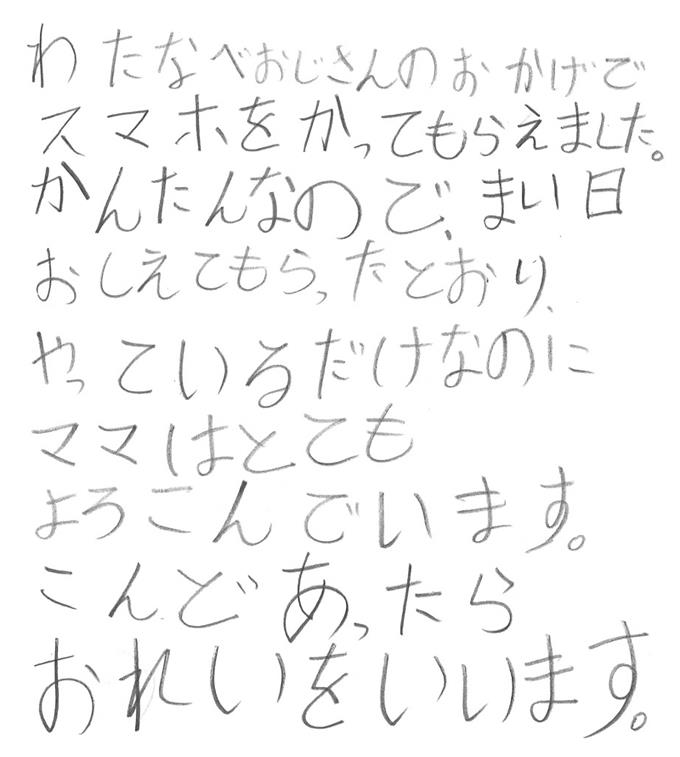 わたなべおじさんのおかげで
スマホをかってもらえました。
かんたんなので、まい日
おしえてもらったとおり、
やっているだけなのに
ママはとても
よろこんでいます。
こんどあったら
おれいをいいます。